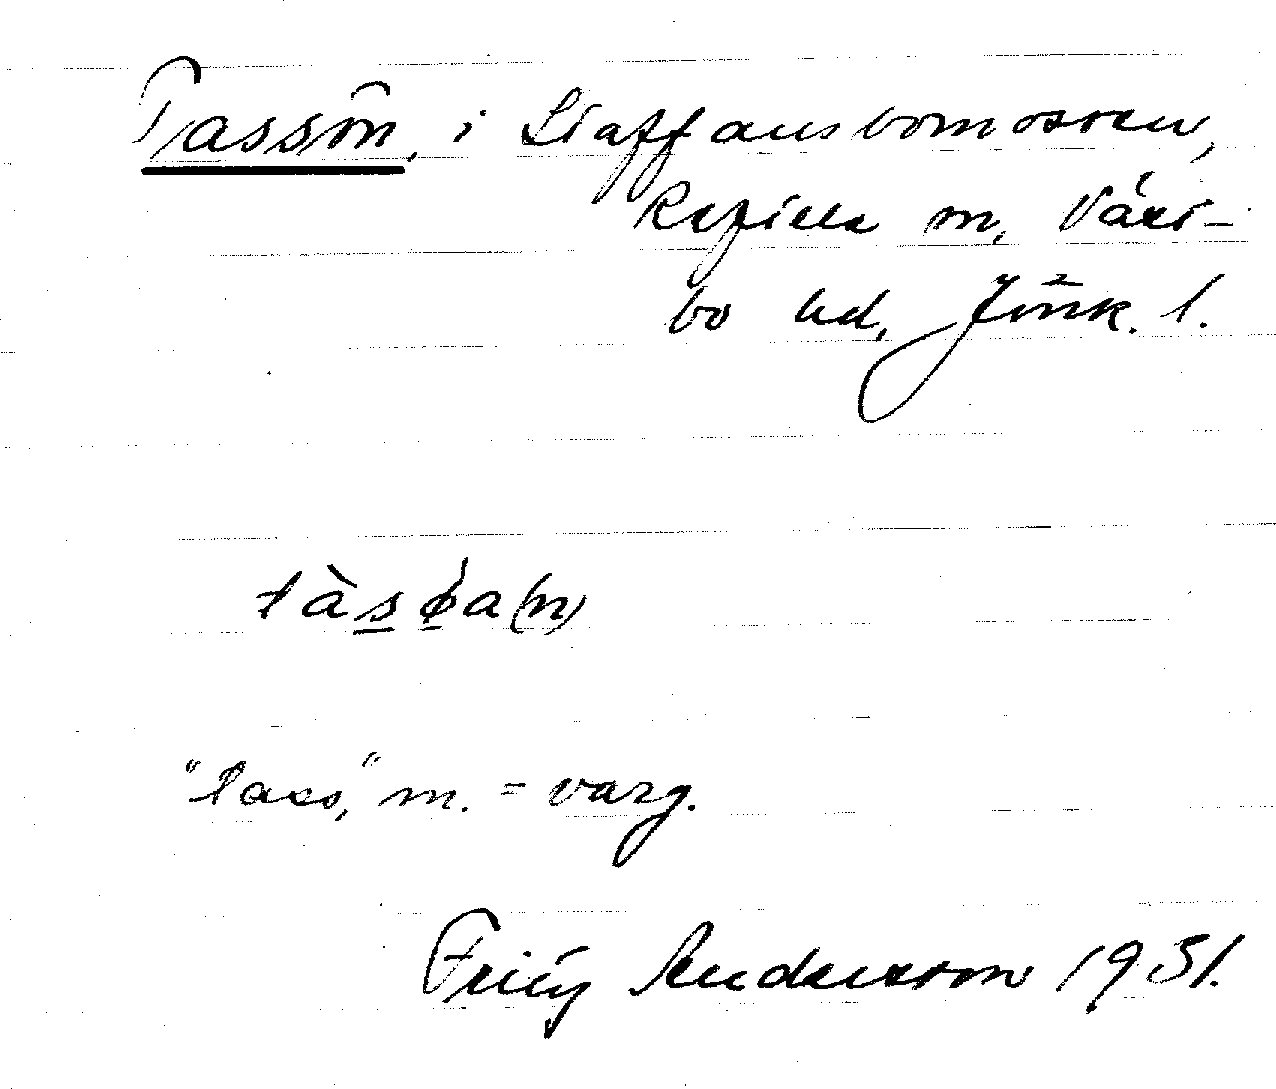 Tassön, i Staffansbomossen,
Reftele sn, Väst-
bo hd, Jönk. l.
tàsøa(n)
"tass," m. = varg.
Fritz Andersson 1931.